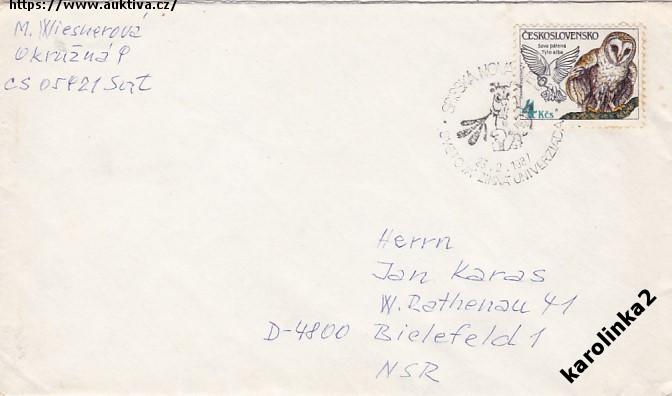 https://www.auktiva.cz/
M. Wiesnerová
Okružná 9
CS 05921 Svit
ČESKOSLOVENSKO
Sova pálená
Tyto alba
4 Kčs
SVETOVÁ ZIMNÁ UNIVERZIÁDA
2.1987
Herrn
Jan Karas
W. Rathenau 41
D-4800 Bielefeld 1
NSR
karolinka2